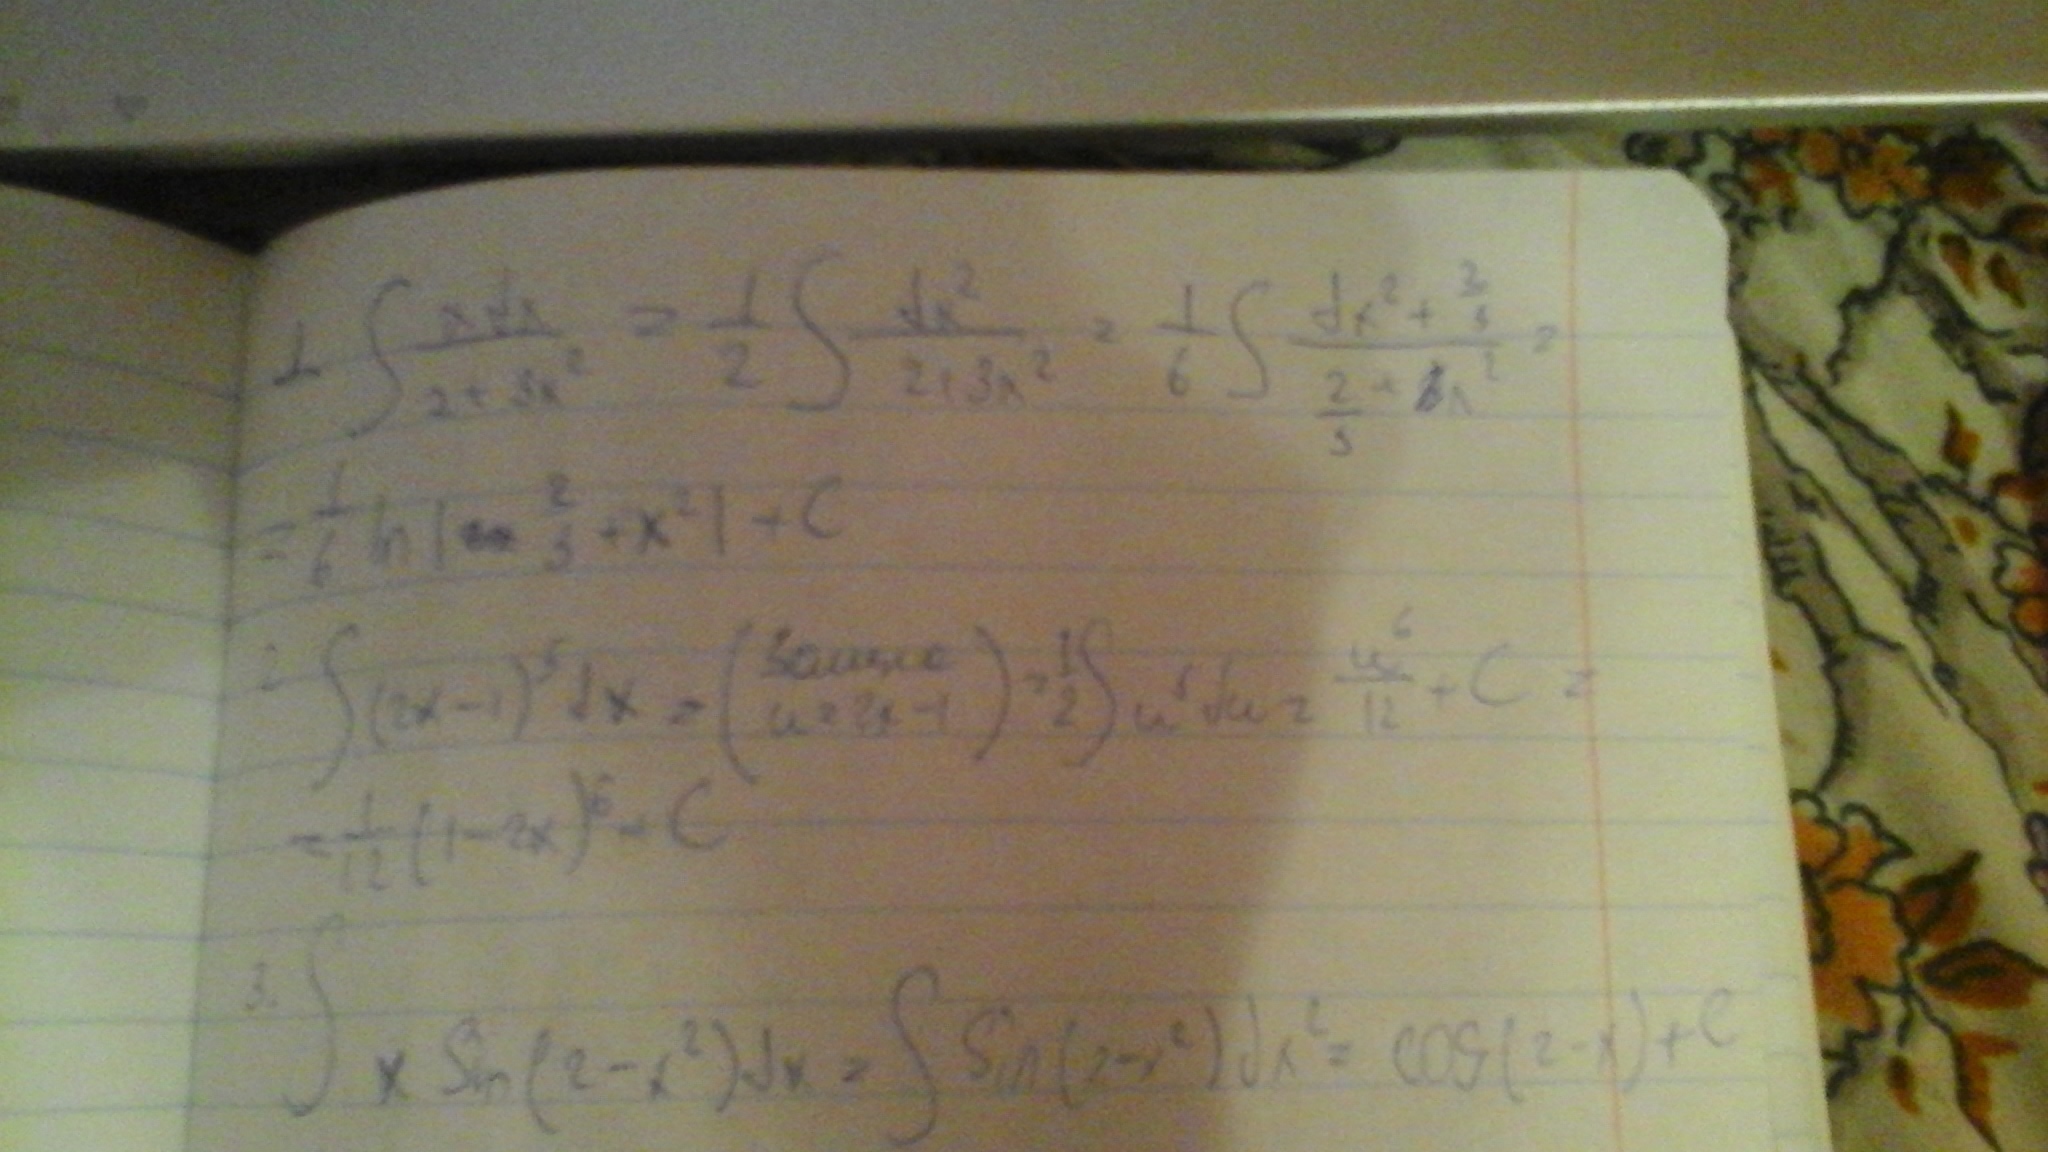 1 ∫ xdx / 2+3x² = 1/2 ∫ dx² / 2+3x² = 1/6 ∫ dx²+ 2/3 / 2/3 + x² =
= 1/6 ln | 2/3 +x²| + C
2. ∫ (2x-1)⁵ dx = (Замена u=2x-1) = 1/2 ∫ u⁵ du = u⁶/12 + C =
= 1/12 (1-2x)⁶ + C
3. ∫ x Sin(2-x²)dx = ∫ Sin(2-x²)dx² = cos(2-x)+C